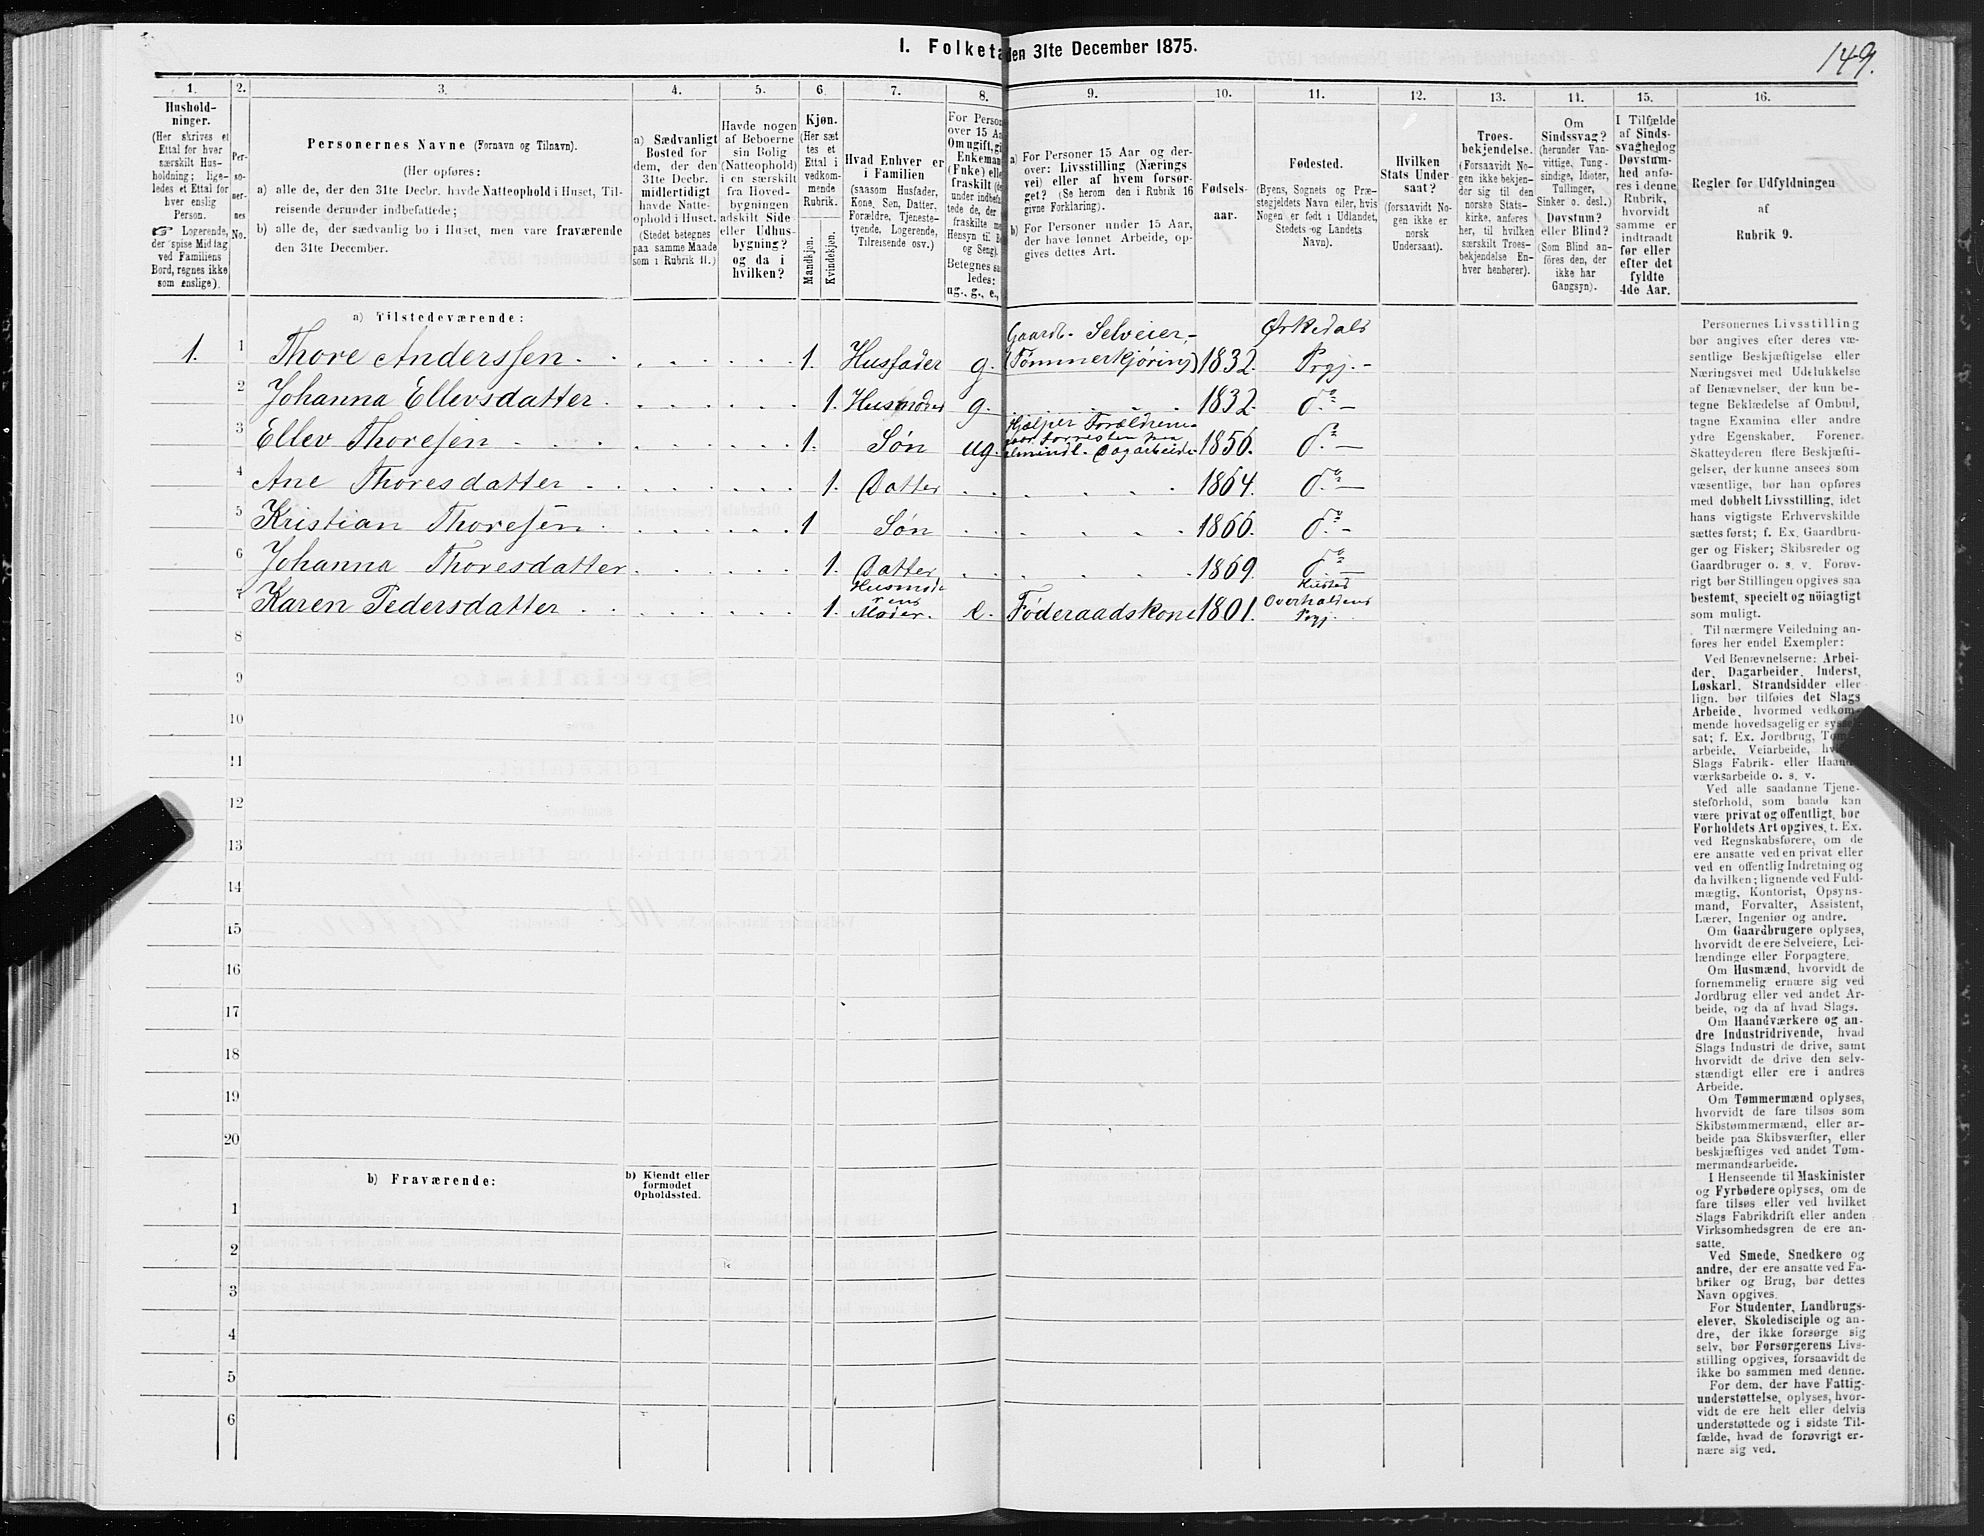 149.
I. Folketa den 31te December 1875.
1. 2. 3. 4. 5. 6. 7. 8. 9. 10. 11. 12. 13. 14. 15. 16.
Hushold-
ninger.
(Her skrives et
Ettal for hver
særskilt Hus-
holdning; lige-
ledes et Ettal for
hver enslig
Person.
☞ Logerende,
der spise Middag
ved Familiens
Bord, regnes ikke
som enslige).
Per-
so-
ner-
nes
No.
Personernes Navne (Fornavn og Tilnavn).
(Her opføres:
a) alle de, der den 31te Decbr. havde Natteophold i Huset, Til-
reisende derunder indbefattede;
b) alle de, der sædvanlig bo i Huset, men vare fraværende
den 31te December.
a) Sædvanligt
Bosted for
dem, der den
31te Decbr.
midlertidigt
havde Natte-
ophold i Huset.
(Stedet betegnes
paa samme Maade
som i Rubrik 11.)
Havde nogen
af Beboerne
sin Bolig
(Natteophold)
i en særskilt
fra Hoved-
bygningen
adskilt Side-
eller Udhus-
bygning?
og da i
hvilken?
Kjøn.
(Her sæt
tes et
Ettal i
vedkom-
mende
Rubrik.
Mandkjøn.
Kvindekjøn.
Hvad Enhver er
i Familien
(saasom Husfader,
Kone, Søn, Datter,
Forældre, Tjeneste-
tyende, Logerende,
Tilreisende osv.)
For Person
over 15 Aa
Om ugift, gi
Enkeman
(Fnke) elle
fraskilt (de
under indbefat
tede de, der
fraskilte me
Hensyn til B
og Seng).
Betegnes saa
ledes:
ug., g., e.,
a) For Personer 15 Aar og der-
over: Livsstilling (Nærings
vei) eller af hvem forsør-
get? (Se herom den i Rubrik 16
givne Forklaring).
b) For Personer under 15 Aar,
der have lønnet Arbeide, op-
gives dettes Art.
Fødsels-
aar.
Fødested.
(Byens, Sognets og Præ-
stegjeldets Navn eller, hvis
Nogen er født i Udlandet,
Stedets og Landets
Navn).
Hvilken
Stats Under-
saat?
(forsaavidt No-
gen ikke er
norsk
Undersaat).
Troes-
bekjendelse.
(Forsaavidt No-
gen ikke bekjen-
der sig til den
norske Stats-
kirke, anføres
her, til hvilken
særskilt Troes-
bekjendelse En-
hver henhører).
Om
Sindssvag?
(herunder Van-
vittige, Tung-
sindige, Idioter,
Tullinger,
Sinker o. desl.)
Døvstum?
eller Blind?
(Som Blind an-
føres den, der
ikke har
Gangsyn).
I Tilfælde
af Sinds-
svaghed og
Døvstum-
hed anfø-
res i denne
Rubrik,
hvorvidt
samme er
indtraadt
før eller
efter det
fyldte
4de Aar.
Regler for Udfyldningen
af
Rubrik 9.
a) Tilstedeværende:
1. 1 Thore Anderssen 1. Husfader g. Gaardb. Selveier, (Tømmerkjøring) 1832. Ørkedals Prgj.
2 Johanna Ellevsdatter 1. Husmoder g. 1832. do
3 Ellev Thoresen 1. Søn ug. Hjælper Forældrene 1856. do
4 Ane Thoresdatter 1. Datter 1864. do
5 Kristian Thoresen 1 Søn 1866. do
6 Johanna Thoresdatter 1. Datter 1869. do
7 Karen Pedersdatter 1. Husmoderens Moder. e. Føderaadskone 1801. Overhaldens Prgj.
8
9
10
11
12
13
14
15
16
17
18
19
20
b) Fraværende:
b) Kjendt eller
formodet
Opholdssted.
1
2
3
4
5
6
Personernes Livsstilling
bør angives efter deres væ-
sentlige Beskjæftigelse eller
Næringsvei med Udelukkelse
af Benævnelser, der kun be-
tegne Beklædelse af Ombud,
tagne Examina eller andre
ydre Egenskaber. Forener
Skatteyderen flere Beskjæfti-
gelser, der kunne ansees som
væsentlige, bør han opføres
med dobbelt Livsstilling, idet
hans vigtigste Erhvervskilde
sættes først; f. Ex. Gaardbru-
ger og Fisker; Skibsreder og
Gaardbruger o. s. v. Forøv-
rigt bør Stillingen opgives saa
bestemt, specielt og nöiagtigt
som muligt.
Til nærmere Veiledning an-
føres her endel Exempler:
Ved Benævnelserne: Arbei-
der, Dagarbeider, Inderst,
Løskarl, Strandsidder eller
lign. bør tilføies det Slags
Arbeide, hvormed vedkom-
mende hovedsagelig er syssel-
sat; f. Ex. Jordbrug, Tøm-
arbeide, Veiarbeide, hvi
Slags Fabrik- eller Haand-
værksarbeide o. s. v.
Ved alle saadanne Tjene-
steforhold, som baade kan
være privat og offentligt, bør
Forholdets Art opgives, t. Ex.
ved Regnskabsførere, om de
ere ansatte ved en privat eller
ved en offentlig Indretning og
da hvilken; lignende ved Fuld-
mægtig, Kontorist, Opsyns-
mand, Forvalter, Assistent,
Lærer, Ingeniør og andre.
Om Gaardbrugere oplyses,
hvorvidt de ere Selveiere, Lei-
lændinge eller Forpagtere.
Om Husmænd, hvorvidt de
fornemmelig ernære sig ved
Jordbrug eller ved andet Ar-
beide, og da af hvad Slags.
Om Haandværkere og an-
dre Industridrivende, hvad
Slags Industri de drive, samt
hvorvidt de drive den selv-
stændigt eller ere i andres
Arbeide.
Om Tømmermænd oplyses,
hvorvidt de fare tilsøs som
Skibstømmermænd, eller ar-
beide paa Skibsværfter, eller
beskjæftiges ved andet Tøm-
mermandsarbeide.
I Henseende til Maskinister
og Fyrbødere oplyses, om de
fare tilsøs eller ved hvilket
Slags Fabrikdrift eller anden
Virksomhedsgren de ere an-
satte.
Ved Smede, Snedkere og
andre, der ere ansatte ved Fa-
briker og Brug, bør dettes
Navn opgives.
For Studenter, Landbrugs-
elever, Skoledisciple og an-
dre, der ikke forsørge sig
selv, bør Forsørgerens Livs-
stilling opgives, forsaavidt de
ikke bo sammen med denne.
For dem, der have Fattig-
understøttelse, oplyses, hvor-
vidt de ere helt eller delvis
understøttede og i sidste Til-
fælde, hvad de forøvrigt er-
nære sig ved.